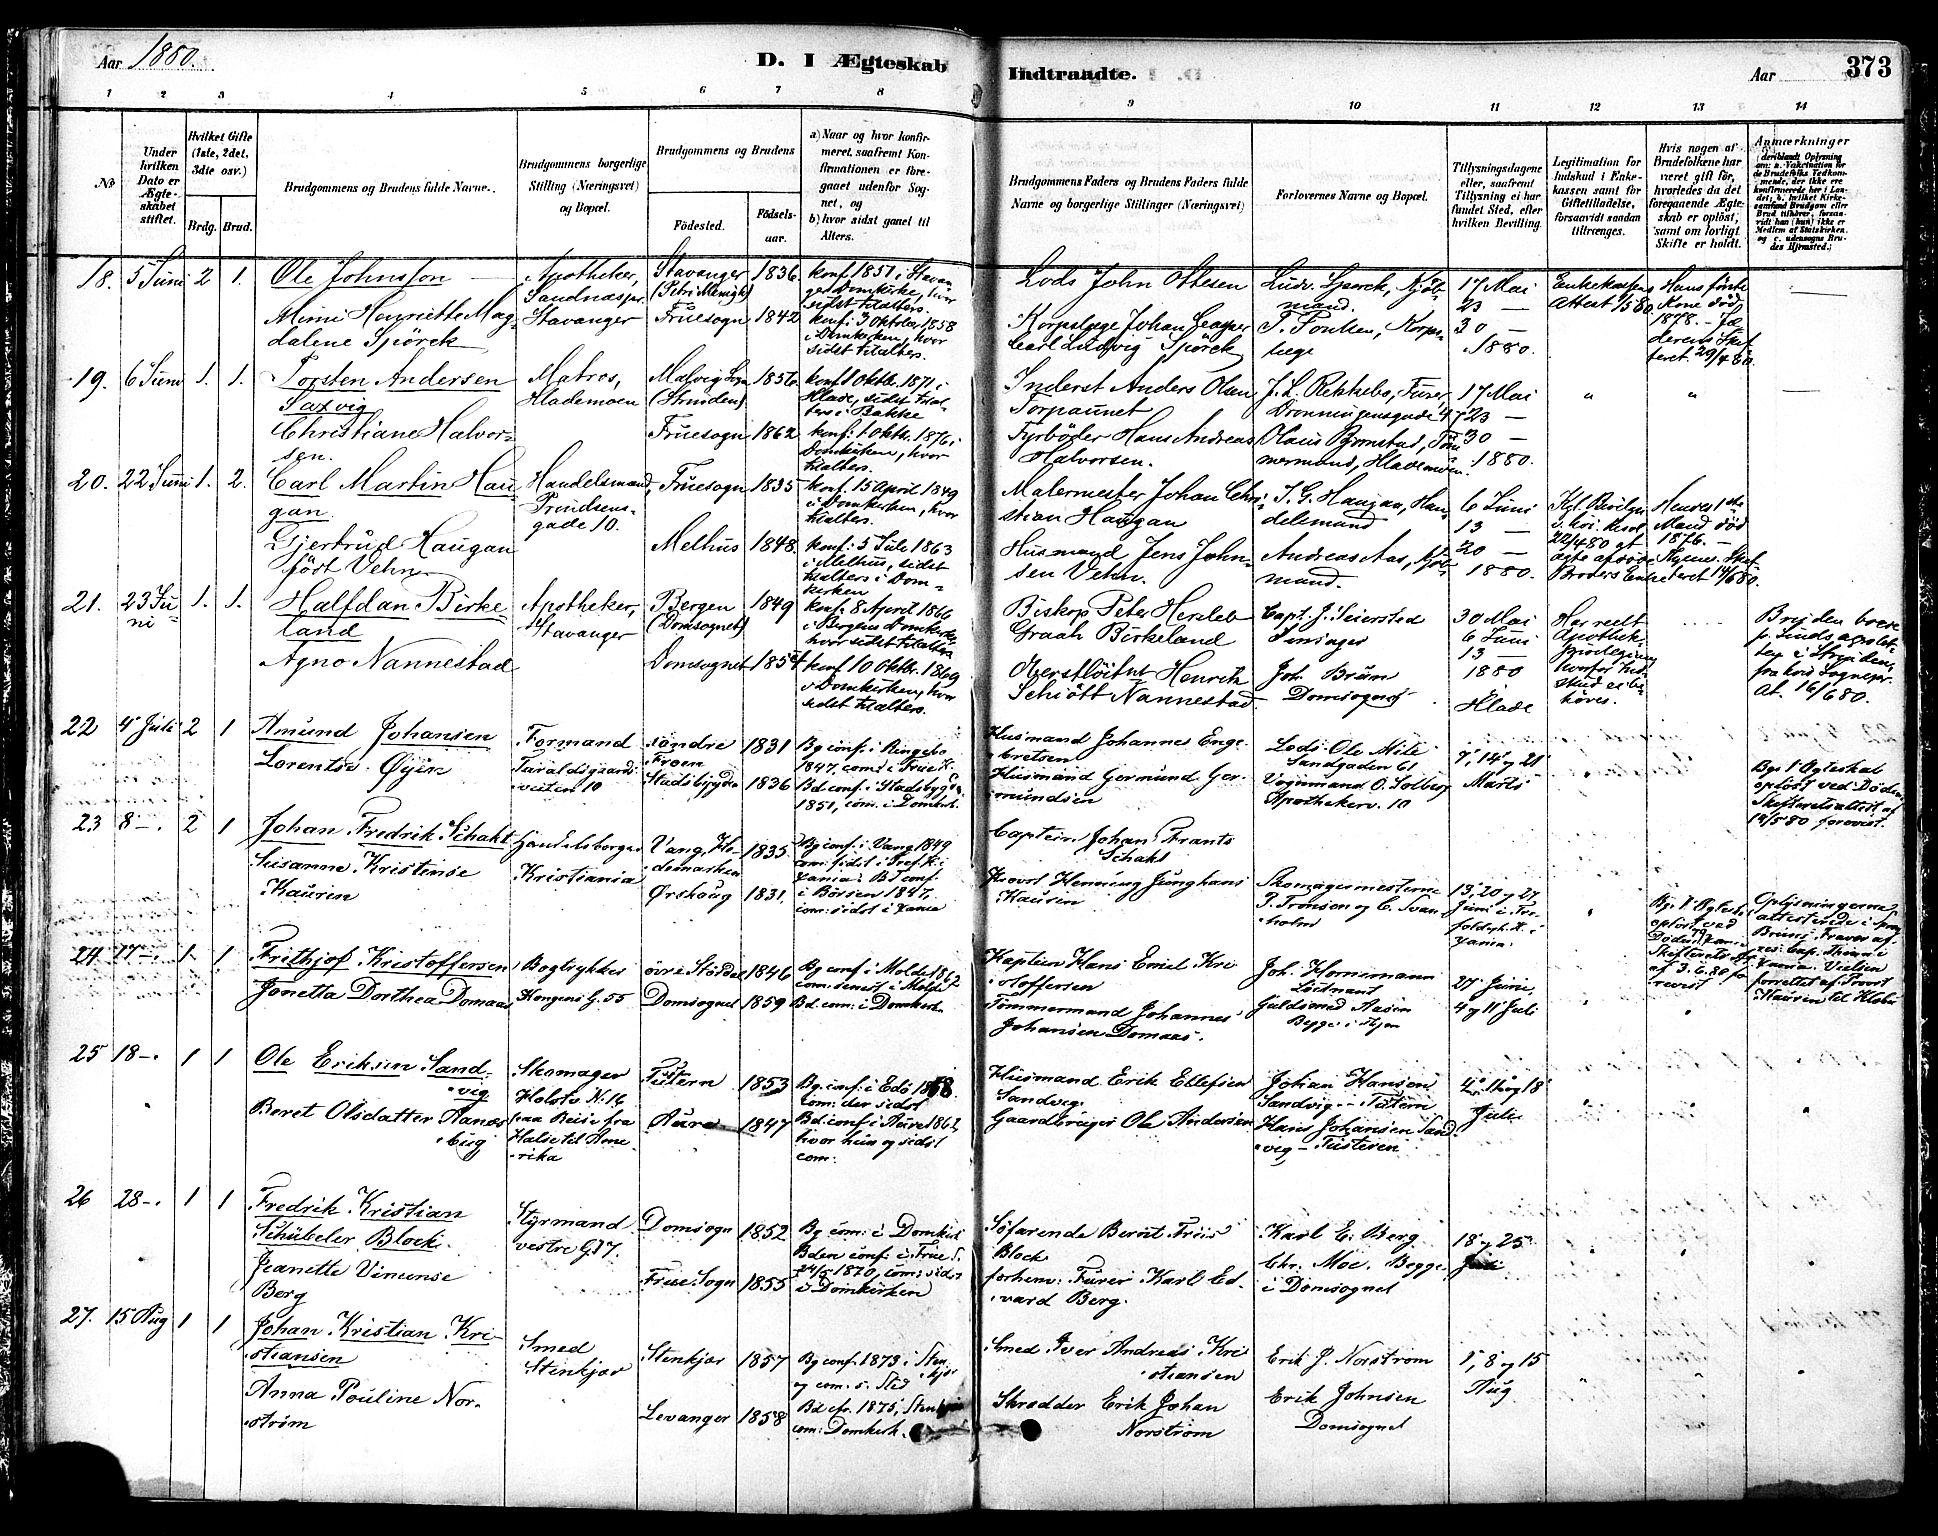 Aar 1880.
D. I Ægteskab Indtraadte.
Aar
373
1 2 3 4 5 6 7 8 9 10 11 12 13 14
No
Under hvilken Dato er Ægteskabet stiftet.
Hvilket Gifte (1ste, 2det, 3die osv.)
Brdg. Brud.
Brudgommens og Brudens fulde Navne.
Brudgommens borgerlige Stilling (Næringsvei) og Bopæl.
Brudgommens og Brudens
Fødested.
Fødselsaar.
a) Naar og hvor konfirmeret, saafremt Konfirmationen er foregaaet udenfor Sognet, og
b) hvor sidst gaaet til Alters.
Brudgommens Faders og Brudens Faders fulde Navne og borgerlige Stillinger (Næringsvei)
Forlovernes Navne og Bopæl.
Tillysningsdagene eller, saafremt Tillysning ei har fundet Sted, efter hvilken Bevilling.
Legitimation for Indskud i Enkekassen samt for Giftetilladelse, forsaavidt saadan tiltrænges.
Hvis nogen af Brudefolkene har været gift før, hvorledes da det foregaaende Ægteskab er opløst, samt om lovligt Skifte er holdt.
Anmærkninger
18. 5 Juni 2 1.
Ole Johnsson
Mimi Henriette Mag-
dalene Spörck
Apotheker,
Sandnæs pr.
Stavanger
Stavanger
(Petri Menigh)
1836
Fruesogn 1842
konf. 1851 i Stavan-
ger Domkirke, hvor
sidst tilalters.
konf. 3 Oktober 1858
i Domkirken, hvor
sidst tilalters.
Lods John Ottesen
Korpslæge Johan Casper
Carl Ludvig Spörck
Ludv. Spörck, Kjöb-
mand.
T. Poulsen, Korps-
læge
17 Mai
23 —
30 —
1880.
Enkekassens
Attest
Hans første
Kone død
1878. — Jæ-
derens Skif-
teret 29/4 80.
19. 6 Juni 1. 1.
Torsten Andersen
Saxvig
Christiane Halvor-
sen.
Matros,
Hlademoen
Malvig Sogn
(Strinden)
1856
Fruesogn 1862
konf. 1 Oktbr. 1871 i
Hlade, sidst tilal-
ters i Bakke
konf. 1 Oktbr. 1876 i
Domkirken, hvor
tilalters.
Inderst Anders Olsen
Torpaunet
Fyrbøder Hans Andreas
Halvorsen.
J. L. Rekkebo, Furer,
Dronningensgade 47
Olaus Bjørnstad, Töm-
mermand, Hlademoen.
17 Mai
23 —
30 —
1880.
20. 22 Juni 1. 2.
Carl Martin Hau-
gan
Gjertrud Haugan
født Vehn
Handelsmand,
Prindsens-
gade 10.
Fruesogn 1835
Melhus 1848.
konf. 15 April 1849
i Domkirken, hvor
tilalters.
konf. 5 Juli 1863
i Melhus, sidst
tilalters i Dom-
kirken
Malermester Johan Chri-
stian Haugan
Husmand Jens John-
sen Vehn.
J. G. Haugan, Han-
delsmand
Andreas Aas, Kjöb-
mand.
6 Juni
13 —
20 —
1880.
Kgl. Bevilgn.
22/4 80 at
ægte afdøde
Broders Enke
Hendes 1ste
Mand død
1876. —
Skif-
teret 14/6 80.
21. 23 Ju-
ni 1. 1.
Halfdan Birke-
land
Agno Nannestad
Apotheker,
Stavanger
Bergen
(Domsognet)
1849
Domsognet 1854
konf. 8 April 1866
i Bergens Domkirke,
hvor sidst tilalters
konf. 10 Oktbr. 1869
i Domkirken, hvor
sidst tilalters.
Biskop Peter Hersleb
Graah Birkeland
Oberstlöitnt Henrik
Schiött Nannestad
Capt. J. Seiersted
Joh. Bruun
Domsognet
30 Mai
6 Juni
13 —
1880
Hlade
Har nedt
Apothek-
privilegium
hvorfor Ind-
skud ei be-
höves.
16/6 80.
22 4 Juli 2 1
Amund Johansen
Lorentse Øyen
Formand
Taraldsgaards-
veiten 10
söndre
Froen
1831
Stadsbygden 1836
Bg conf. i Ringebo
1847, com: i Frue K.
Bd conf. i Stadsbygden
1851, com. i Domkirk.
Husmand Johannes Enge-
bretsen
Husmand Germund Ger-
mundsen
Lods Ole Mile
Sandgaden 61
Vognmand O. Solberg
Apothekerv. 10
7, 14 og 21
Marts
Bgs 1 Ægteskab
opløst ved Døden
Skifteretsattest af
14/5 80 forevist.
23 8 —. 2 1
Johan Fredrik Schaht
Susanne Kristense
Kausen
Handelsborger
Kristiania
Vang, He-
demarken
1835
Ørskoug 1831.
Bg conf. i Vang 1849
com: sidst i Tref. K. i
Xania. Bd conf.
i Börsen 1847,
com: sidst i Xania
Captein Johan Frants
Schaht
Provst Henning Junghans
Kausen
Skomagermesterne
T. Tronsen og C. Svan-
holm
13, 20 og 27
Juni i Tre-
foldigh. K. i
Xania.
Bgs 1 Ægtesk.
opløst ved
Døden
Skifterets att.
af 3.6.80 fo-
revist
Oplysningerne
attesterede i
24 17 —. 1 1
Frithjof Kristoffersen
Jonetta Dorthea Domaas
Bogtrykker
Kongens G. 55
övre Stördal 1846
Domsognet 1859
Bg conf. i Molde 1862
com: senest i Molde
Bd. com: i Domkirk.
Kaptein Hans Emil Kri-
stoffersen
Tömmermand Johannes
Johansen Domaas.
Joh. Hornemann
Löitnant
Guldsmed Aasen
Begge i Byen
27 Juni,
4 og 11 Juli
25 18 —. 1 1
Ole Eriksen Sand-
vig
Beret Olsdatter Aanes-
bug
Skomager
Holste N. 14
paa Reise fra
Halse til Ame-
rika
Tustern 1853
Aure 1847
Bg. conf. i Edö 1868.
com: der sidst
Bd. conf. i Aure 1862,
hvor hun og sidst
com:
Husmand Erik Ellefsen
Sandvig
Gaardbruger Ole Andersen
Johan Hansen
Sandvig — Tustern
Hans Johansen Sand-
vig — Tusteren
4, 11 og 18
Juli
26 28 —. 1 1
Fredrik Kristian
Schübeler Block
Jeanette Vimense
Berg
Styrmand
vestre G 17.
Domsogn 1852
Frue Sogn 1855
Bg com: i Domkirk
Bden conf. i Frue S.
24/5 1870, com: sidst
i Domkirken
Söfarende Bernt Friis
Block
forhenv: Furer Karl Ed-
vard Berg.
Karl E. Berg
Chr. Moe. Begge
i Domsognet
18 og 25
Juli
27. 15 Aug 1 1
Johan Kristian Kri-
stiansen
Anna Pouline Nor-
ström
Smed
Stenkjær
Stenkjær 1857
Levanger 1858
Bg conf. 1873 i Sten-
kjær
og com. s. Sted
Bd cfr. 1875, i Stenkjær
com: Domkirk.
Smed Iver Andreas Kri-
stiansen
Skrædder Erik Johan
Norström
Erik J. Norström
Erik Johnsen
Domsognet
1, 8 og 15
Aug